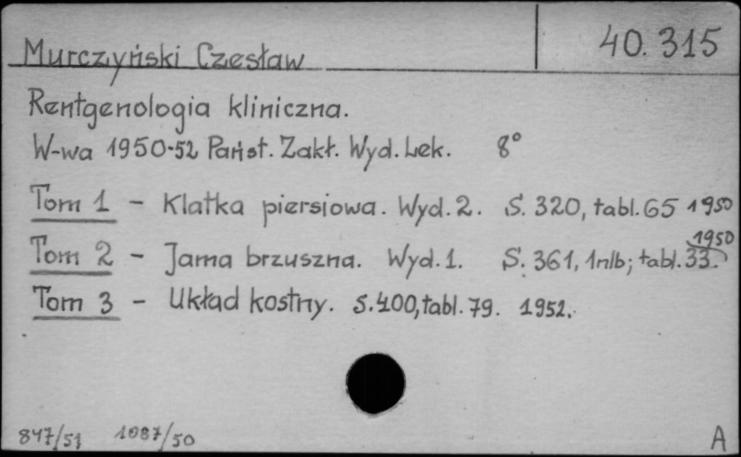 40.315
Murczyński Czesław
Rentgenologia kliniczna.
W-wa 1950-52 Państ. Zakł. Wyd. Lek. 8°
Tom 1 - Klatka piersiowa. Wyd. 2. S. 320, tabl. 65 1950
Tom 2 - Jama brzuszna. Wyd. 1. S. 361, 1nlb; tabl. 33. 1950
Tom 3 - Układ kostny. S. 400, tabl. 79. 1952.
847/51 1087/50 A